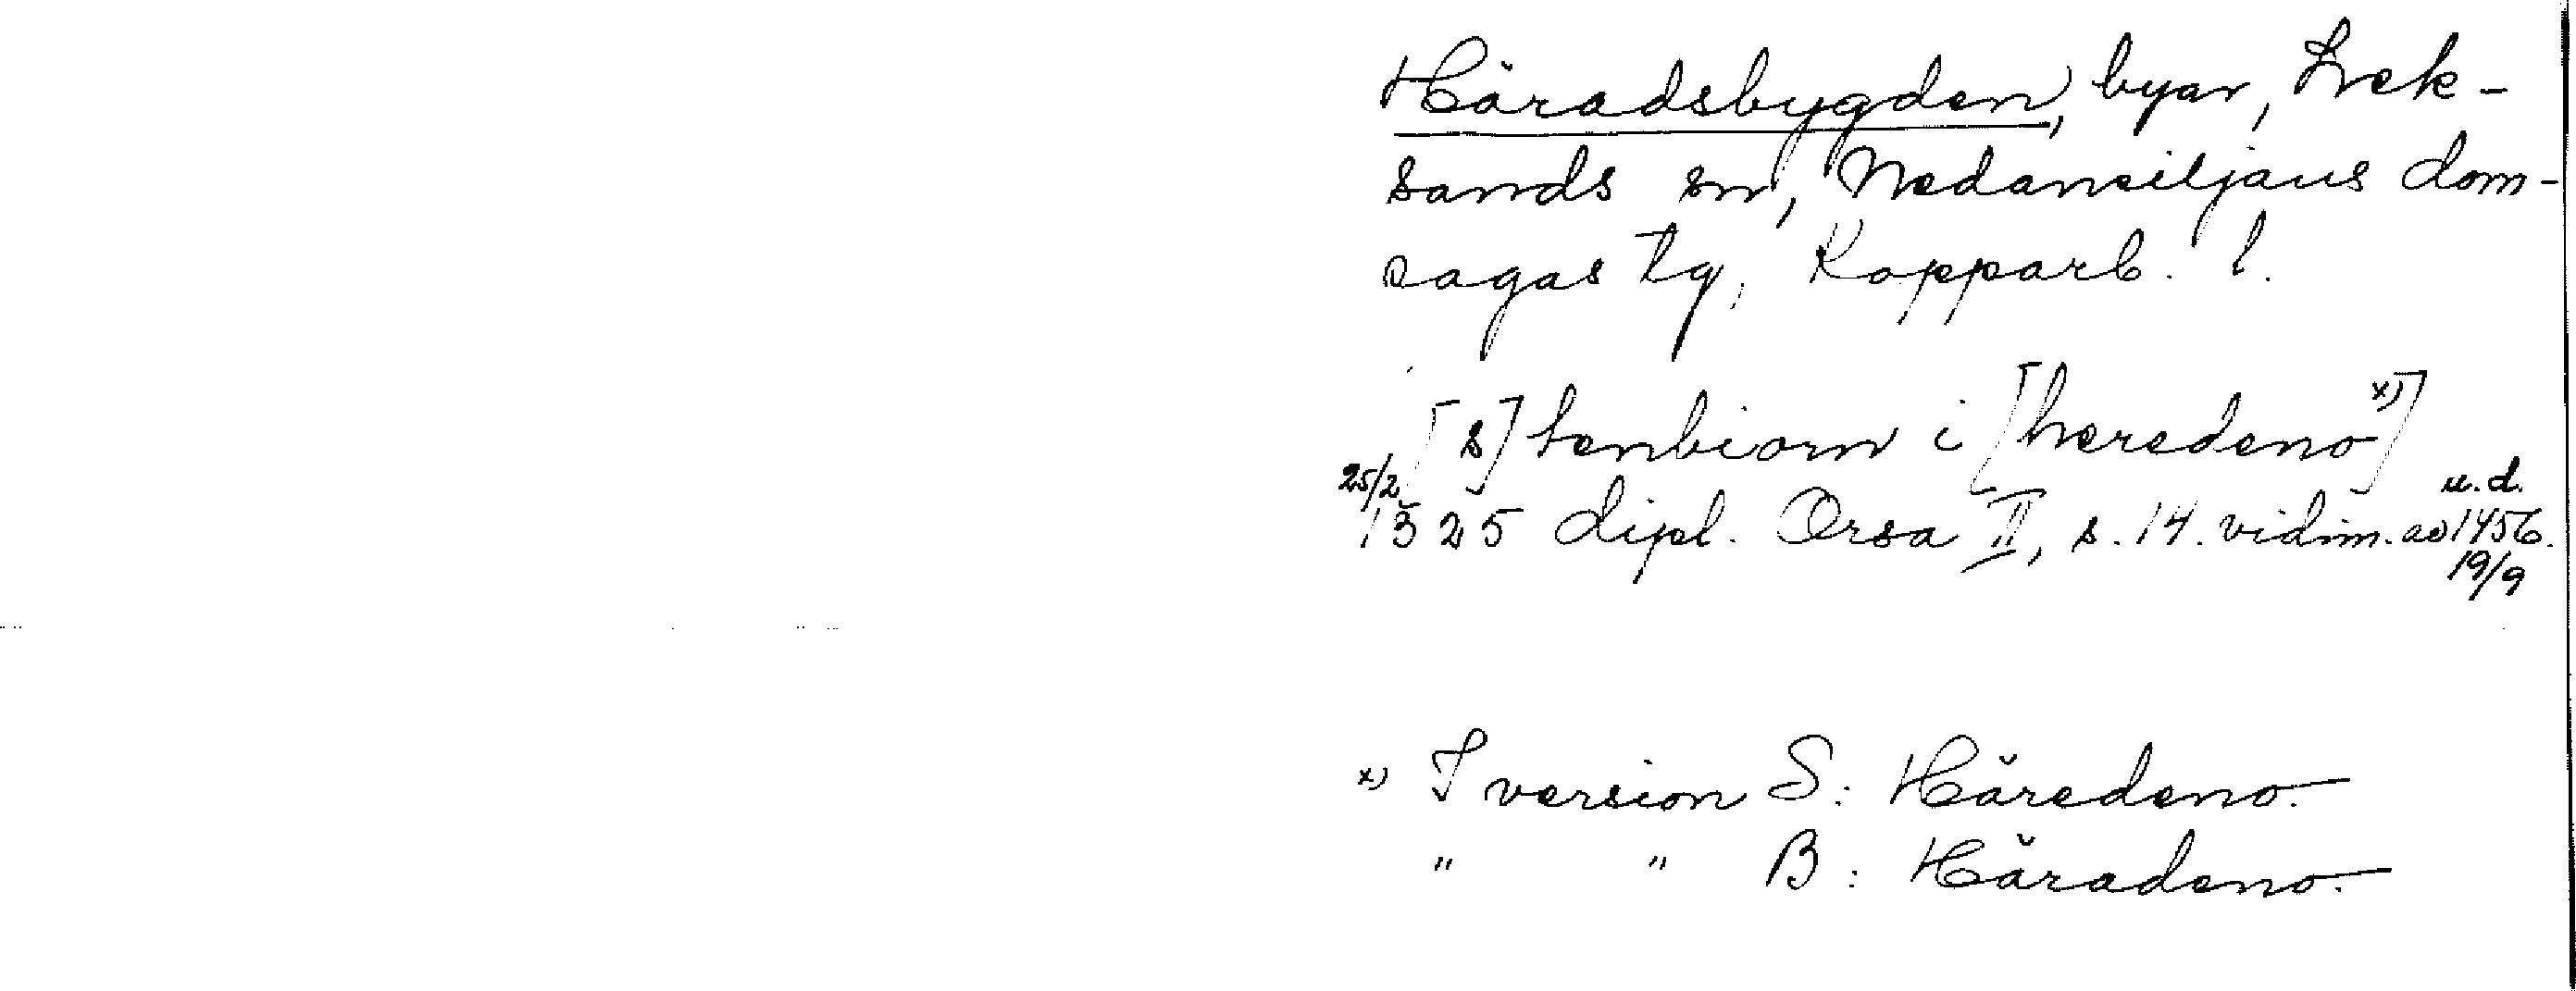 Häradsbygden, byar, Lek-
sands sn, Nedansiljans dom-
sagas tg, Kopparb. l.
[s]tenbiorn i [heredeno x)]
25/2 1325 dipl. Orsa II, s. 14. vidim. av u.d. 1456. 19/9
x) I version S: Häredeno.
" " B: Häradeno.